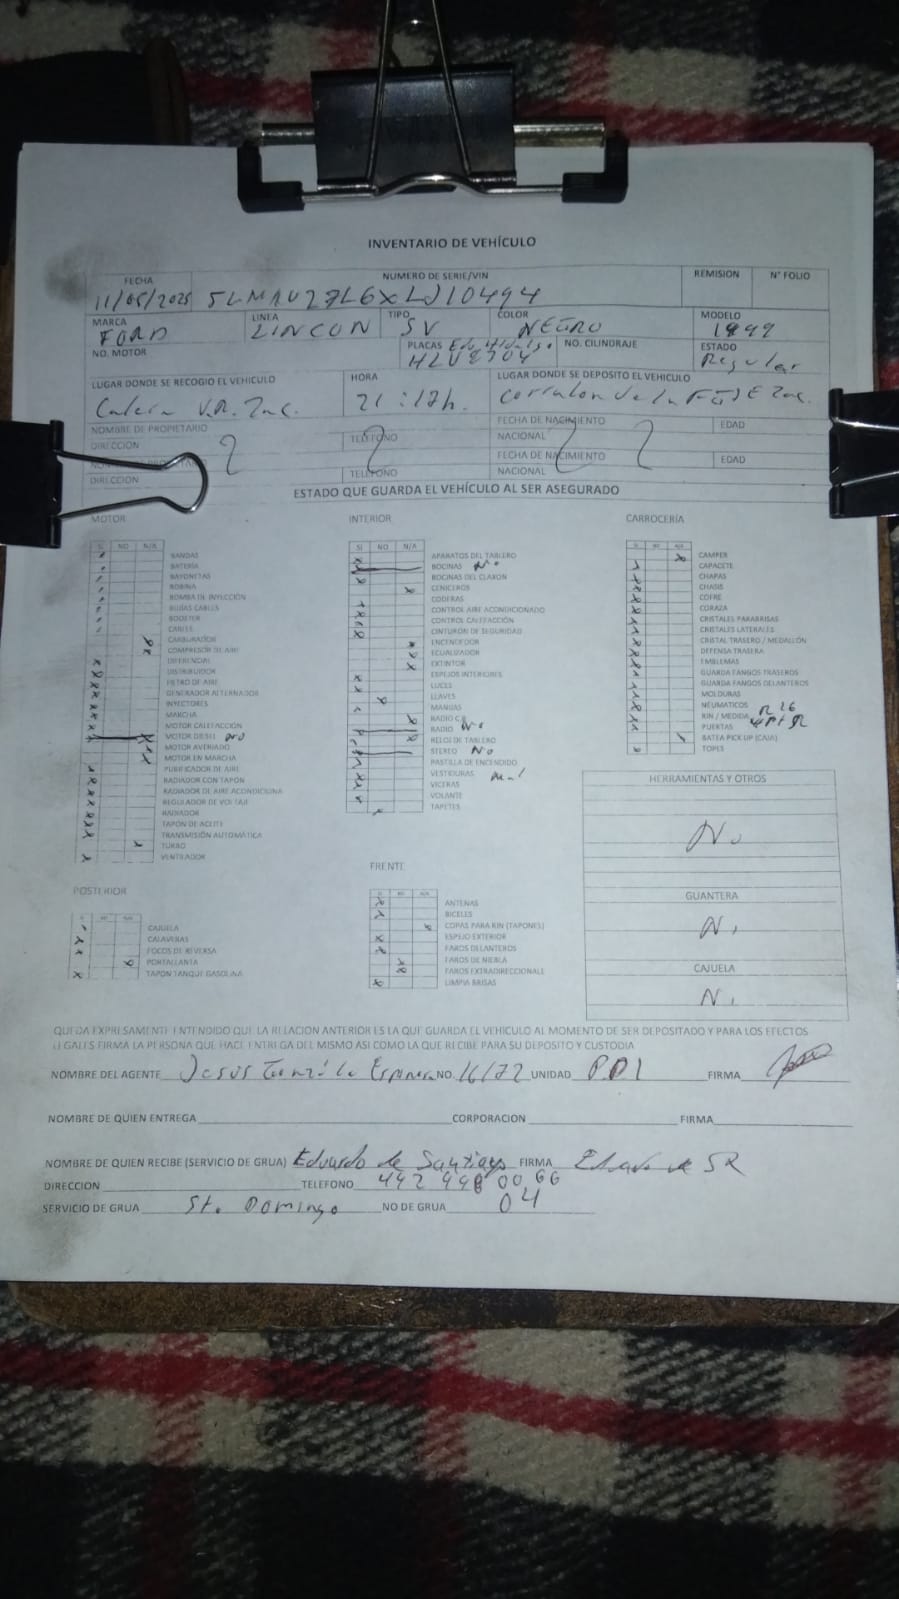 INVENTARIO DE VEHÍCULO
FECHA NUMERO DE SERIE/VIN REMISION N° FOLIO
11/05/2025 5LMAU27L6XLJ10494
MARCA LINEA TIPO COLOR MODELO
FORD LINCON SV NEGRO 1999
NO. MOTOR PLACAS Edo. Hidalgo NO. CILINDRAJE ESTADO
HLV8704 Regular
LUGAR DONDE SE RECOGIO EL VEHICULO HORA LUGAR DONDE SE DEPOSITO EL VEHICULO
Calera V.R. Zac. 21:17h. corralon de la FGJE Zac.
NOMBRE DE PROPIETARIO FECHA DE NACIMIENTO EDAD
DIRECCION TELEFONO NACIONAL
FECHA DE NACIMIENTO EDAD
DIRECCION TELEFONO NACIONAL
ESTADO QUE GUARDA EL VEHÍCULO AL SER ASEGURADO
MOTOR
SI NO N/A
BANDAS
BATERIA
BAYONETAS
BOBINA
BOMBA DE INYECCIÓN
BUJIAS CABLES
BOOSTER
CARTER
CARBURADOR
COMPRESOR DE AIRE
DIFERENCIAL
DISTRIBUIDOR
FILTRO DE AIRE
GENERADOR ALTERNADOR
INYECTORES
MARCHA
MOTOR CALEFACCIÓN
MOTOR DIESEL No
MOTOR AVERIADO
MOTOR EN MARCHA
PURIFICADOR DE AIRE
RADIADOR CON TAPON
RADIADOR DE AIRE ACONDICIONA
REGULADOR DE VOLTAJE
RADIADOR
TAPON DE ACEITE
TRANSMISIÓN AUTOMATICA
TURBO
VENTILADOR
INTERIOR
SI NO N/A
APARATOS DEL TABLERO
BOCINAS No
BOCINAS DEL CLAXON
CENICEROS
CODERAS
CONTROL AIRE ACONDICIONADO
CONTROL CALEFACCIÓN
CINTURÓN DE SEGURIDAD
ENCENDEDOR
ECUALIZADOR
EXTINTOR
ESPEJOS INTERIORES
LUCES
LLAVES
MANIJAS
RADIO C.B
RADIO No
RELOJ DE TABLERO
STEREO No
PASTILLA DE ENCENDIDO
VESTIDURAS Mal
VICERAS
VOLANTE
TAPETES
CARROCERÍA
SI NO N/A
CAMPER
CAPACETE
CHAPAS
CHASIS
COFRE
CORAZA
CRISTALES PARABRISAS
CRISTALES LATERALES
CRISTAL TRASERO / MEDALLÓN
DEFENSA TRASERA
EMBLEMAS
GUARDA FANGOS TRASEROS
GUARDA FANGOS DELANTEROS
MOLDURAS
NEUMATICOS
RIN / MEDIDA
PUERTAS
BATEA PICK UP (CAJA)
TOPES
HERRAMIENTAS Y OTROS
No
GUANTERA
No
CAJUELA
No
POSTERIOR
SI NO N/A
CAJUELA
CALAVERAS
FOCOS DE REVERSA
PORTALLANTA
TAPON TANQUE GASOLINA
FRENTE
SI NO N/A
ANTENAS
BICELES
COPAS PARA RIN (TAPONES)
ESPEJO EXTERIOR
FAROS DELANTEROS
FAROS DE NIEBLA
FAROS EXTRADIRECCIONALE
LIMPIA BRISAS
QUEDA EXPRESAMENTE ENTENDIDO QUE LA RELACION ANTERIOR ES LA QUE GUARDA EL VEHICULO AL MOMENTO DE SER DEPOSITADO Y PARA LOS EFECTOS
LEGALES FIRMA LA PERSONA QUE HACE ENTREGA DEL MISMO ASI COMO LA QUE RECIBE PARA SU DEPOSITO Y CUSTODIA
NOMBRE DEL AGENTE Jesus Espinosa NO. UNIDAD PDI FIRMA
NOMBRE DE QUIEN ENTREGA CORPORACION FIRMA
NOMBRE DE QUIEN RECIBE (SERVICIO DE GRUA) Eduardo de Santiago FIRMA Eduardo de SR
DIRECCION TELEFONO 492 998 00 66
SERVICIO DE GRUA Sto. Domingo NO DE GRUA 04